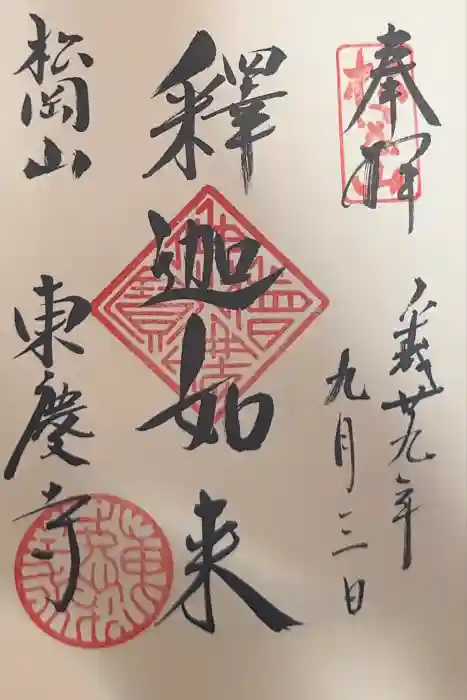 奉拝
平成廿九年
九月三日
釋迦如来
松岡山
東慶寺